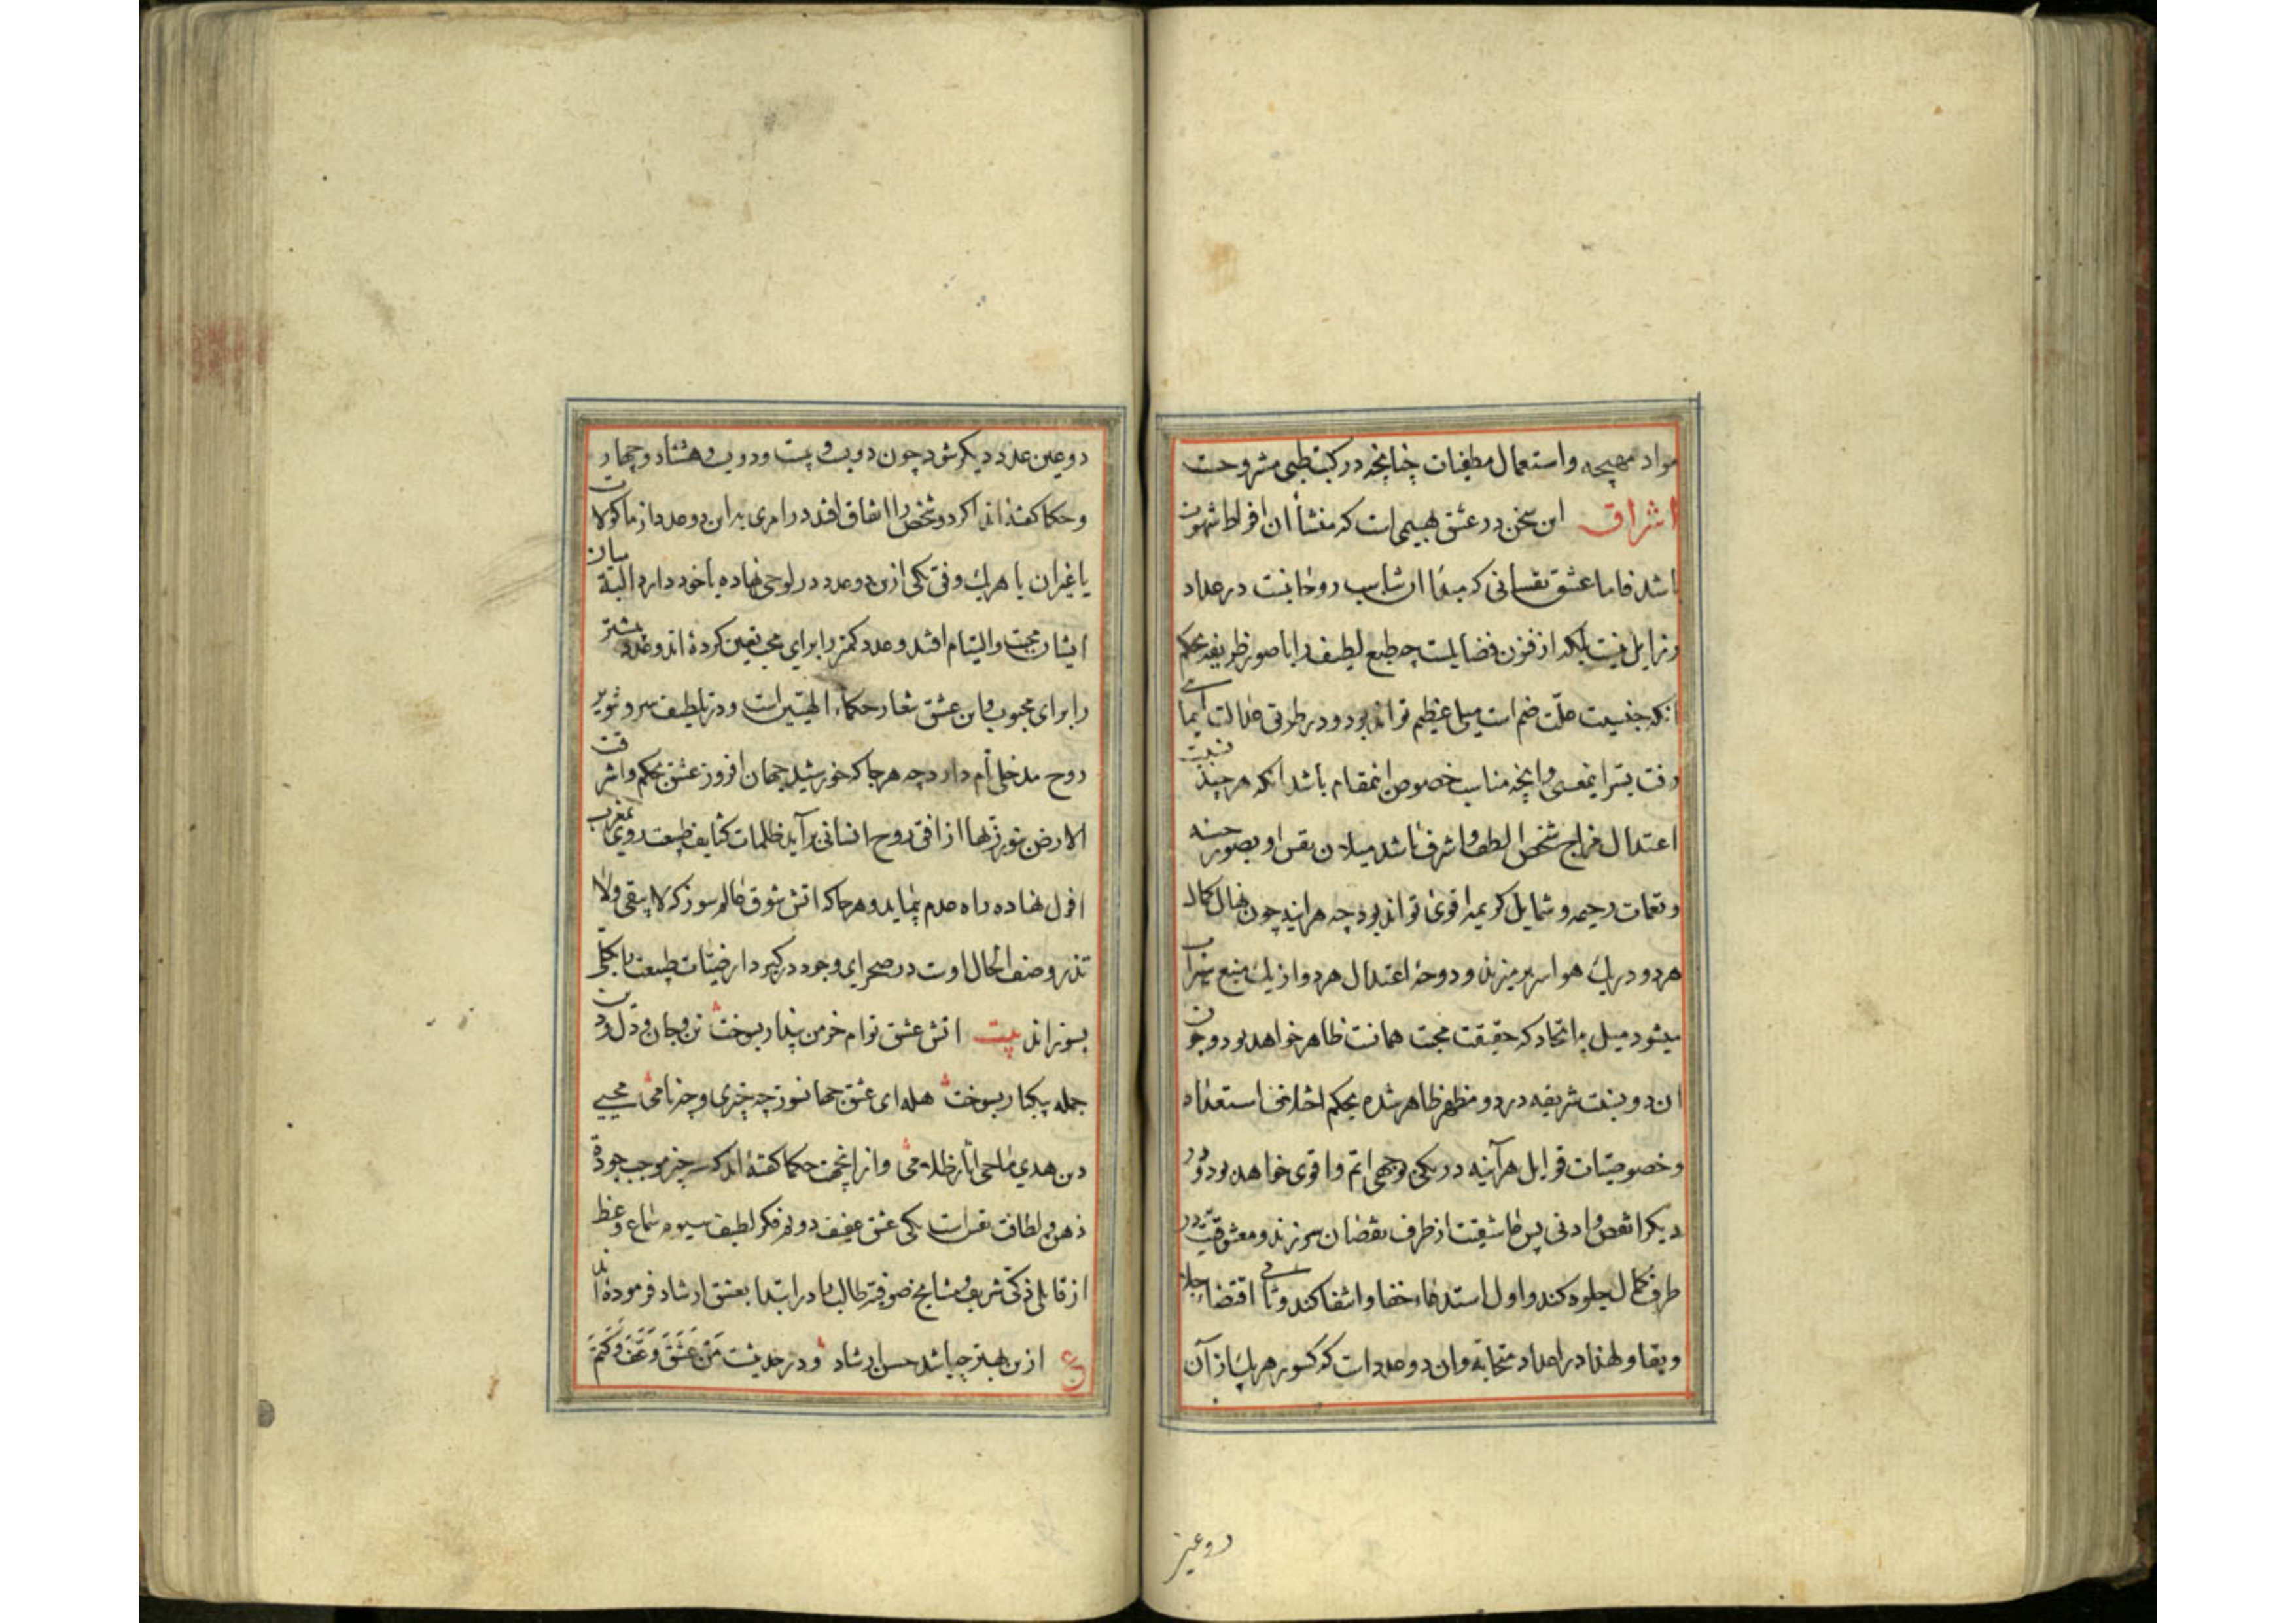 مواد مهیجه واستعمال مطفیات چنانچه در کتب طبی مشروحت
اشراق این سخن در عشق بهیمی است که منشأ ان افراط شهوت
باشد فاما عشق نفسانی که مبدا ان تناسب روحانیت در عداد
رذایل نیست بلکه از فنون فضایلست چه طبع لطیف را با صور ظریفه بحکم
انکه جنسیت علّت ضم است میلی عظیم تواند بود ودر طوق عدالت ایمائی
رفت بسرّ این معنی وانچه مناسب خصوص این مقام باشد انکه هر چند نسبت
اعتدال مزاج شخص الطف واشرف باشد میلان نفس او بصور حسنه
ونغمات رخیمه وشمایل کریمه اقوی تواند بود چه هراینه چون نهال کمال
هر دو در یک هوا سر میزند ودوحهٔ اعتدال هر دو از یک منبع سیراب
میشود میل باتحاد که حقیقت محبت همانست ظاهر خواهد بود وچون
ان دو نسبت شریفه در دو مظهر ظاهر شده بحکم اختلاف استعداد
وخصوصیّات قوابل هرآینه در یکی بوجهی اتم واقوی خواهد بود ودر
دیگر انقص وادنی پس عاشقیت از طرف نقصان سر زند ومعشوقیت در
طرف کمال جلوه کند واول استدعاء خفا وانتفا کند وثانی اقتضاء جلا
وبقا ولهذا در اعداد متحابّه وان دو عدد است که کسور هر یک از آن
دو عین
دو عین عدد دیگر شود چون دویست وبیست ودویست وهشتاد وچهار
وحکما گفته اند اگر دو شخص را اتفاق افتد در امری بر این دو عدد از ماکولات
یا غیر ان یا هر یک وفق یکی ازین دو عدد در لوحی نهاده با خود دارد البته میان
ایشان محبت والتیام افتد وعدد کمتر را برای محب تعیین کرده اند وعدد بیشتر
را برای محبوب واین عشق شعار حکماء الهیّین است ودر تلطیف سر وتنویر
روح مدخلی تام دارد چه هر جا که خورشید جهان افروز عشق بحکم واشرقت
الارض بنور ربها از افق روح انسانی برآید ظلمات کثایف طبیعت روی بمغرب
افول نهاده راه عدم پیماید وهر جا که اتش شوق عالم سوز که لا یبقی ولا
تذر وصف الحال اوست در صحرای وجود در گیرد ارضیّات طبیعت را بکلی
بسوزاند بیت اتش عشق توام خرمن پندار بسوخت تن وجان ودل ودین
جمله بیکبار بسوخت هله ای عشق جهانسوز چه چیزی وچه نامی محیی
دین هدی ماحی اثار ظلامی وازانجهت حکما گفته اند که سه چیز موجب جودة
ذهن ولطافت نفس است یکی عشق عفیف دوم فکر لطیف سیوم سماع وعظ
از قایلی ذکی شریف ومشایخ صوفیّه طالب را در ابتدا بعشق ارشاد فرموده اند
ع ازین بهتر چه باشد حسن ارشاد ودر حدیث مَن عَشَقَ وَعَفَّ وَکَتَمَ